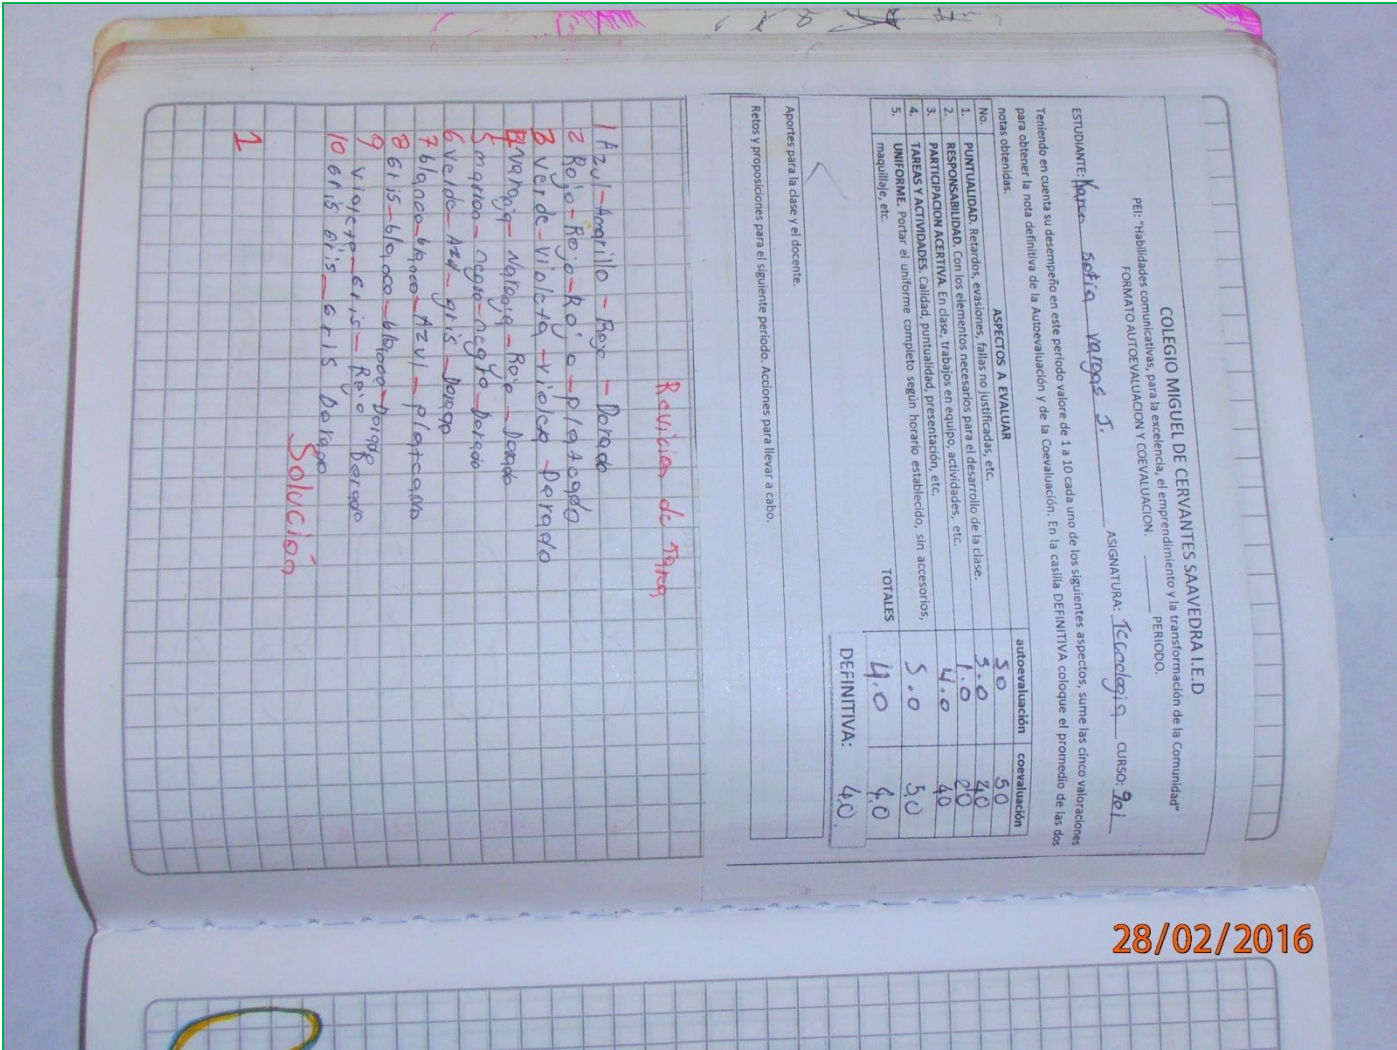 COLEGIO MIGUEL DE CERVANTES SAAVEDRA I.E.D
PEI: "Habilidades comunicativas, para la excelencia, el emprendimiento y la transformación de la Comunidad"
FORMATO AUTOEVALUACION Y COEVALUACION. ______ PERIODO.
ESTUDIANTE: Karen sofia vargas J. ASIGNATURA: Tecnologia CURSO: 901
Teniendo en cuenta su desempeño en este periodo valore de 1 a 10 cada uno de los siguientes aspectos, sume las cinco valoraciones
para obtener la nota definitiva de la Autoevaluación y de la Coevaluación. En la casilla DEFINITIVA coloque el promedio de las dos
notas obtenidas.
No. ASPECTOS A EVALUAR autoevaluación coevaluación
1. PUNTUALIDAD. Retardos, evasiones, fallas no justificadas, etc. 50 50
2. RESPONSABILIDAD. Con los elementos necesarios para el desarrollo de la clase. 5.0 40
3. PARTICIPACION ACERTIVA. En clase, trabajos en equipo, actividades, etc. 1.0 20
4. TAREAS Y ACTIVIDADES. Calidad, puntualidad, presentación, etc. 4.0 40
5. UNIFORME. Portar el uniforme completo según horario establecido, sin accesorios, 5.0 50
maquillaje, etc.
TOTALES 4.0 4.0
DEFINITIVA: 4.0.
Aportes para la clase y el docente.
Retos y proposiciones para el siguiente periodo. Acciones para llevar a cabo.
Revicion de Tarea
1 Azul-Amarillo - Rojo - Dorado
2 Rojo-Rojo-Rojo-platcado
3 verde-violeta-violeta-Dorado
4 Naranja-Naranja-Rojo-Dorado
5 marron-negro-negro-Dorado
6 verde-Azul-gris-Dorado
7 blanco-blanco-Azul-
8 Gris-blanco-blanco-Dorado
9 violeta-Gris-Rojo Dorado
10 Gris Gris-Gris Dorado
Solución
1
28/02/2016